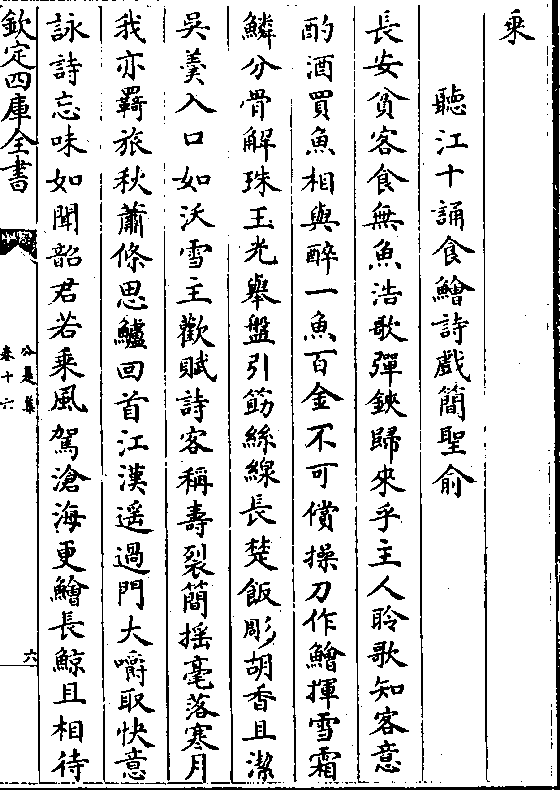 乘
聽江十誦食鱠詩戲簡聖俞
長安貧客食無魚浩歌彈鋏歸來乎主人聆歌知客意
酌酒買魚相與醉一魚百金不可償操刀作鱠揮雪霜
鱗分骨解珠玉光舉盤引筯絲線長楚飯彫胡香且潔
吳羮入口如沃雪主歡賦詩客稱壽裂簡揺毫落寒月
我亦羇旅秋蕭條思鱸回首江漢遥過門大嚼取快意
詠詩忘味如聞韶君若乘風駕滄海更鱠長鯨且相待
欽定四庫全書
公是集
卷十六
六